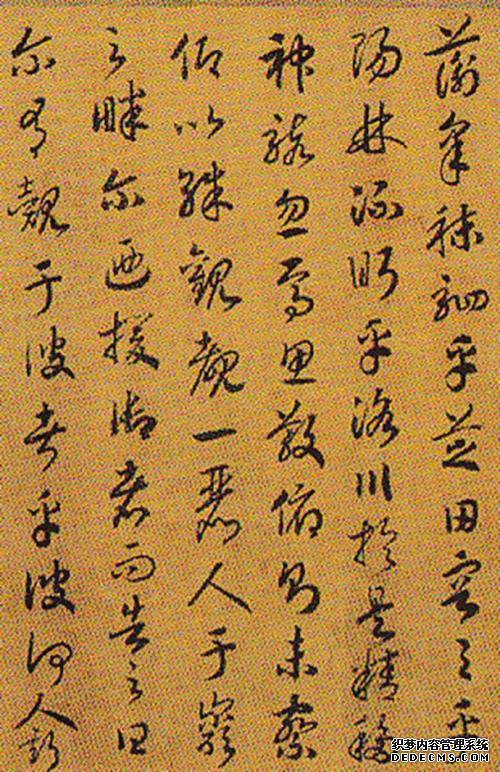 蘅皋秣駟乎芝田容与乎
陽林流眄乎洛川於是精移
神駭忽焉思散俯則未察
仰以殊觀覩一麗人于巖
之畔尔迺援御者而告之曰
尔有覿于彼者乎彼何人斯
织梦内容管理系统
DEDECMS.COM